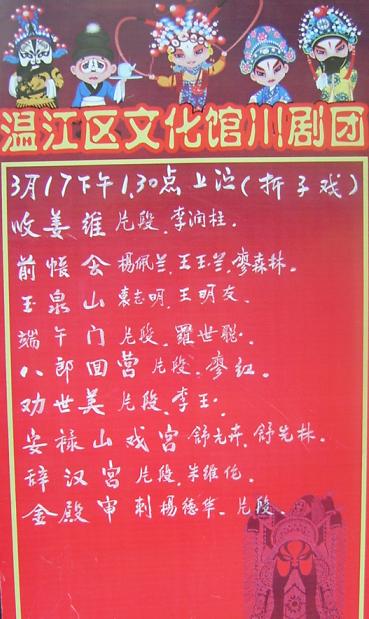 温江区文化馆川剧团
3月17下午1.30点上演(折子戏)
收姜维 片段.李润柱.
前帐会 杨佩兰.王玉兰.廖森林.
玉泉山 袁志明.王明友.
端午门 片段.罗世聪.
八郎回营 片段.廖红.
劝世美 片段.李玉.
安禄山戏宫 舒元卉.舒先林.
辞汉宫 片段.朱维伦.
金殿审刺 杨德华.片段.